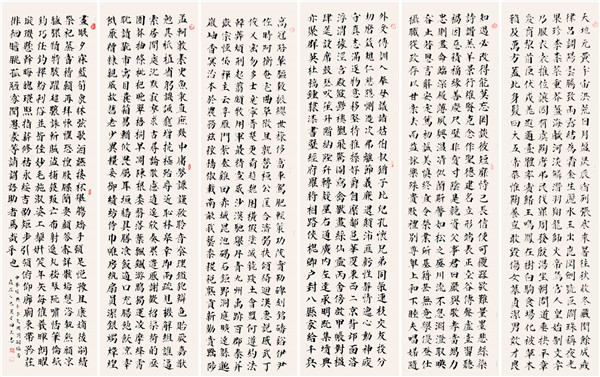 天地元黃宇宙洪荒日月盈昃辰宿列張寒來暑往秋收冬藏閏餘成歲
律呂調陽雲騰致雨露結為霜金生麗水玉出崑岡劍號巨闕珠稱夜光
果珍李柰菜重芥薑海鹹河淡鱗潛羽翔龍師火帝鳥官人皇始制文字
乃服衣裳推位讓國有虞陶唐弔民伐罪周發殷湯坐朝問道垂拱平章
愛育黎首臣伏戎羌遐邇壹體率賓歸王鳴鳳在樹白駒食場化被草木
賴及萬方蓋此身髮四大五常恭惟鞠養豈敢毀傷女慕貞潔男效才良
知過必改得能莫忘罔談彼短靡恃己長信使可覆器欲難量墨悲絲染
詩讚羔羊景行維賢克念作聖德建名立形端表正空谷傳聲虛堂習聽
禍因惡積福緣善慶尺璧非寶寸陰是競資父事君曰嚴與敬孝當竭力
忠則盡命臨深履薄夙興溫凊似蘭斯馨如松之盛川流不息淵澄取映
容止若思言辭安定篤初誠美慎終宜令榮業所基籍甚無竟學優登仕
攝職從政存以甘棠去而益詠樂殊貴賤禮別尊卑上和下睦夫唱婦隨
外受傅訓入奉母儀諸姑伯叔猶子比兒孔懷兄弟同氣連枝交友投分
切磨箴規仁慈隱惻造次弗離節義廉退顛沛匪虧性靜情逸心動神疲
守真志滿逐物意移堅持雅操好爵自縻都邑華夏東西二京背邙面洛
浮渭據涇宮殿盤鬱樓觀飛驚圖寫禽獸畫彩仙靈丙舍傍啟甲帳對楹
肆筵設席鼓瑟吹笙升階納陛弁轉疑星右通廣內左達承明既集墳典
亦聚群英杜稿鍾隸漆書壁經府羅將相路俠槐卿戶封八縣家給千兵
高冠陪輦驅轂振纓世祿侈富車駕肥輕策功茂實勒碑刻銘磻溪伊尹
佐時阿衡奄宅曲阜微旦孰營桓公匡合濟弱扶傾綺迴漢惠說感武丁
俊乂密勿多士寔寧晉楚更霸趙魏困橫假途滅虢踐土會盟何遵約法
韓弊煩刑起翦頗牧用軍最精宣威沙漠馳譽丹青九州禹跡百郡秦并
嶽宗恆岱禪主云亭雁門紫塞雞田赤城昆池碣石鉅野洞庭曠遠綿邈
巖岫杳冥治本於農務茲稼穡俶載南畝我藝黍稷稅熟貢新勸賞黜陟
孟軻敦素史魚秉直庶幾中庸勞謙謹敕聆音察理鑑貌辨色貽厥嘉猷
勉其祗植省躬譏誡寵增抗極殆辱近恥林皋幸即兩疏見機解組誰逼
索居閒處沉默寂寥求古尋論散慮逍遙欣奏累遣慼謝歡招渠荷的歷
園莽抽條枇杷晚翠梧桐早凋陳根委翳落葉飄颻遊鵾獨運凌摩絳霄
耽讀翫市寓目囊箱易輶攸畏屬耳垣牆具膳餐飯適口充腸飽飫烹宰
飢厭糟糠親戚故舊老少異糧妾御績紡侍巾帷房紈扇圓潔銀燭煒煌
晝眠夕寐藍筍象床絃歌酒讌接杯舉觴矯手頓足悅豫且康嫡後嗣續
祭祀蒸嘗稽顙再拜悚懼恐惶牋牒簡要顧答審詳骸垢想浴執熱願涼
驢騾犢特駭躍超驤誅斬賊盜捕獲叛亡布射遼丸嵇琴阮嘯恬筆倫紙
鈞巧任釣釋紛利俗並皆佳妙毛施淑姿工顰妍笑年矢每催曦暉朗曜
璇璣懸斡晦魄環照指薪修祜永綏吉劭矩步引領俯仰廊廟束帶矜莊
徘徊瞻眺孤陋寡聞愚蒙等誚謂語助者焉哉乎也